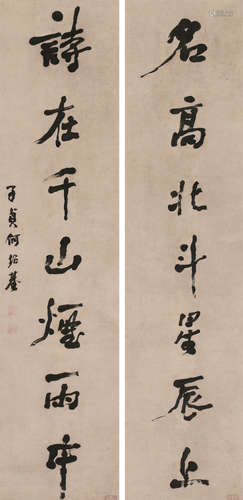 名高北斗星辰上
詩在千山煙雨中
子貞何紹基